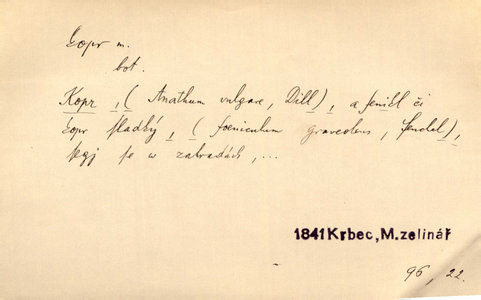 kopr m.
bot.
Kopr , ( Anathum vulgare, Dill ) , a fenikl či
kopr sladký , ( foeniculum graveolens , fenchel ) ,
segj se w zahradách , ...
1841 Krbec, M. zelinář
96 , 22.